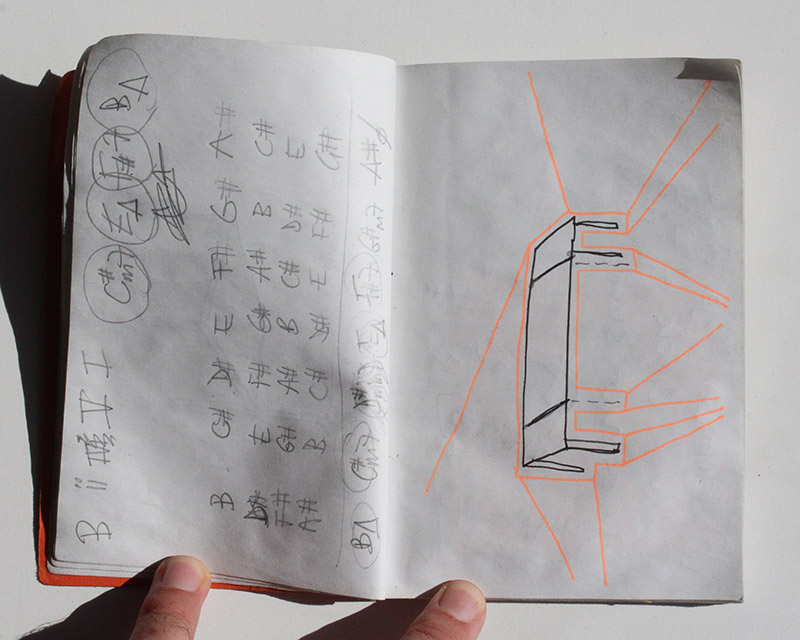 B ii IV V I C#m7 E△ F#7 B△
B C# D# E F# G# A#
D# E F# G# A# B C#
F# G# A# B C# D# E
A# B C# D# E F# G#
B△ C#m7 D#m7 E△ F#7 G#m7 A#ø